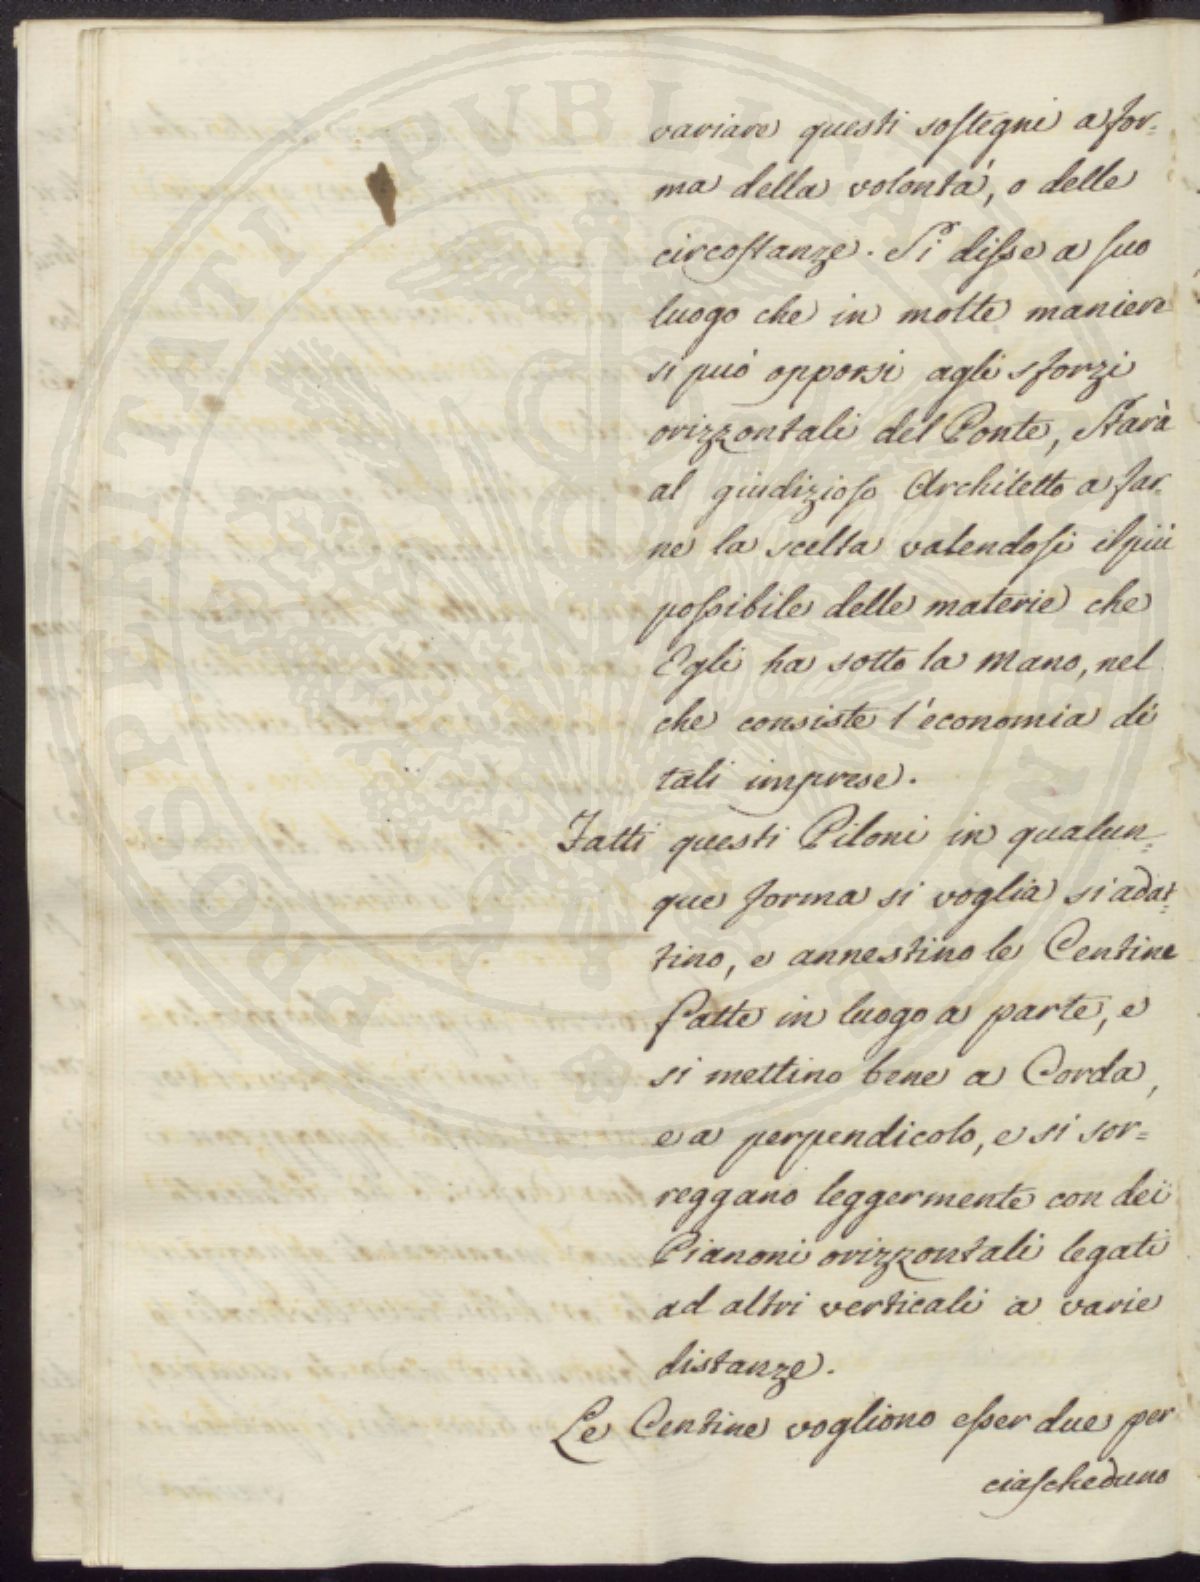 variare questi sostegni a for=
ma della volontà, o delle
circostanze. Si disse a suo
luogo che in molte maniere
si può opporsi agli sforzi
orizzontali del Ponte, Starà
al giudizioso Architetto a far=
ne la scelta valendosi il più
possibile delle materie che
Egli ha sotto la mano, nel
che consiste l'economia di
tali imprese.
Fatti questi Piloni in qualun=
que forma si voglia si adat=
tino, e annestino le Centine
fatte in luogo a parte, e
si mettino bene a Corda,
e a perpendicolo, e si sor=
reggano leggermente con dei
Pianoni orizzontali legati
ad altri verticali a varie
distanze.
Le Centine vogliono esser due per
ciascheduno